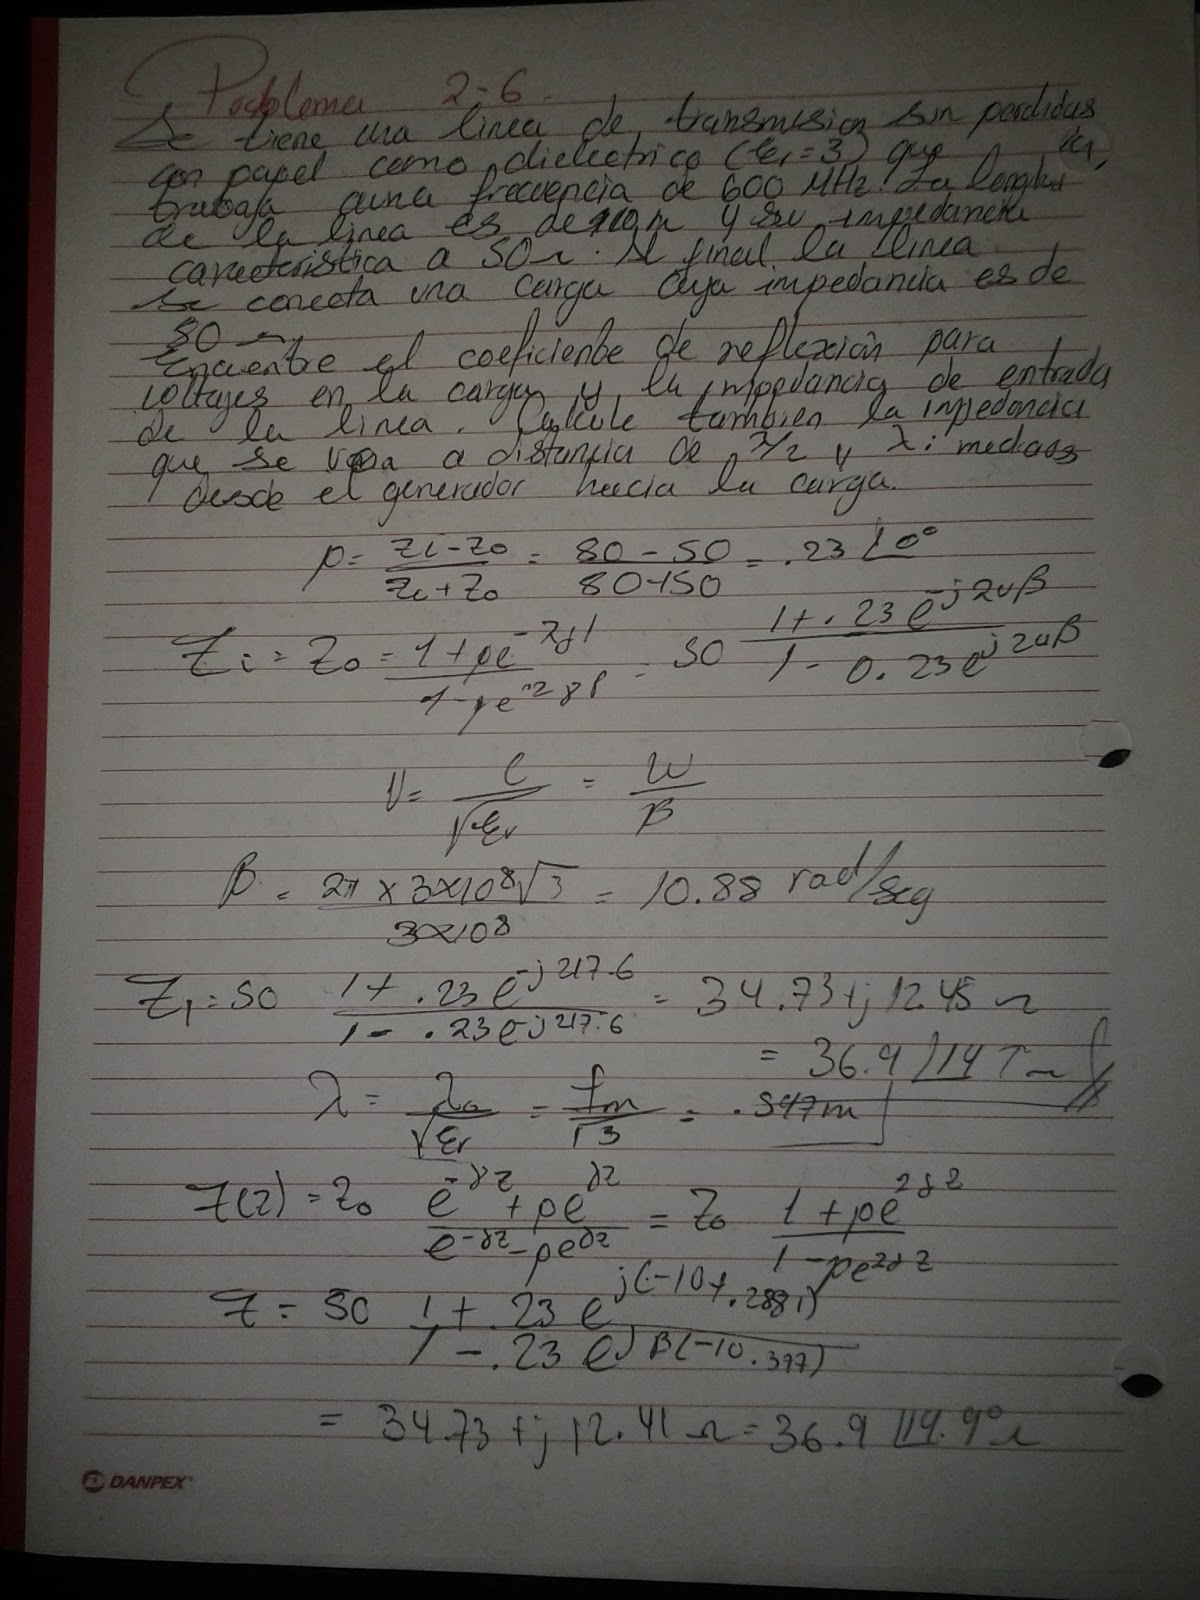 Problema 2-6.
Se tiene una linea de transmision sin perdidas
con papel como dielectrico (Er=3) que
trabaja a una frecuencia de 600 MHz. La longitud
de la linea es de 10m y su impedancia
caracteristica a 50Ω. Al final la linea
se conecta una carga cuya impedancia es de
80 Ω
Encuentre el coeficiente de reflexión para
voltajes en la carga y la impedancia de entrada
de la linea. Calcule tambien la impedancia
que se vea a distancia de λ/2 y λ: medidas
desde el generador hacia la carga.
ρ = ZL-Z0 / ZL+Z0 = 80-50 / 80+50 = .23 ∠0°
Zi = Z0 = 1+ρe^-2γl / 1-ρe^-2γl = 50 1+.23e^-j20β / 1-0.23e^j20β
V = C/√Er = W/β
β = 2π x 3x10^8√3 / 3x10^8 = 10.88 rad/seg
Z1 = 50 1+.23e^-j217.6 / 1-.23e^-j217.6 = 34.73+j12.45 Ω
= 36.9
λ = λ0/√Er = 1m/√3 = .547m
Z(z) = Z0 e^-γz+ρe^γz / e^-γz-ρe^γz = Z0 1+ρe^2γz / 1-ρe^2γz
Z = 50 1+.23e^j(-10+.2881) / 1-.23e^jβ(-10.397)
= 34.73+j12.41Ω = 36.9 ∠19.9°Ω
DANPEX